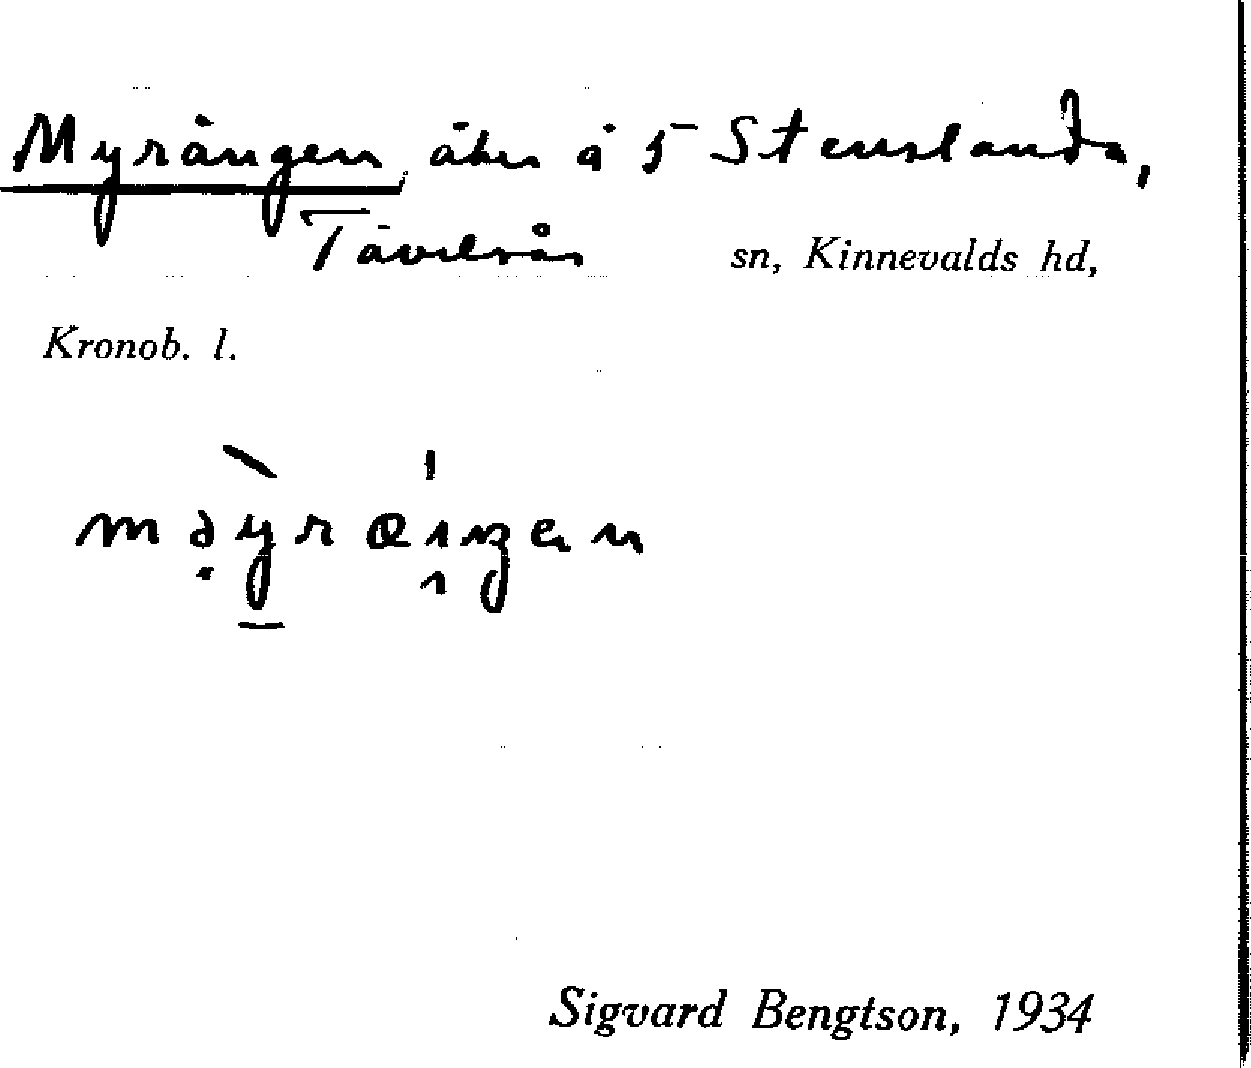 Myrängen, åker å 5 Stenslanda,
Tävelsås sn, Kinnevalds hd,
Kronob. l.
Sigvard Bengtson, 1934